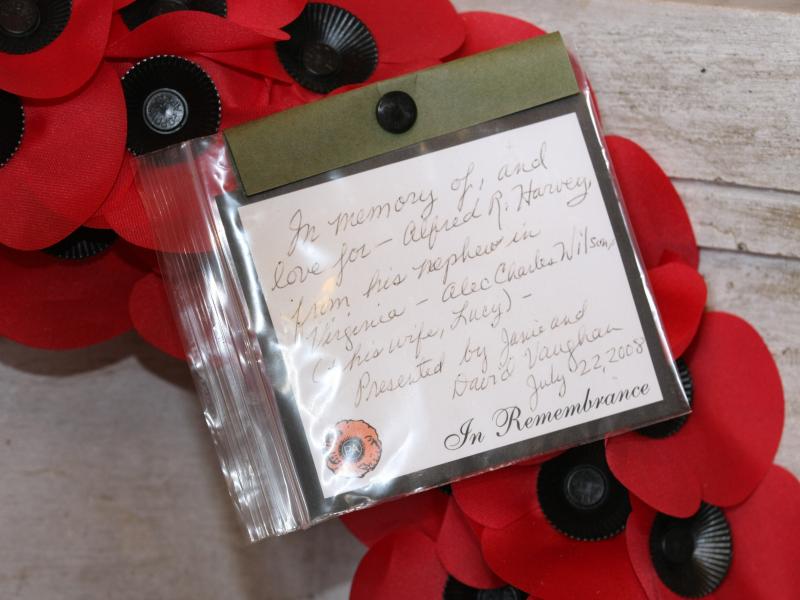 In memory of, and
love for - Alfred R. Harvey,
from his nephew in
Virginia - Alec Charles Wilson,
(& his wife, Lucy) -
Presented by Janie and
David Vaughan
July 22, 2008
In Remembrance